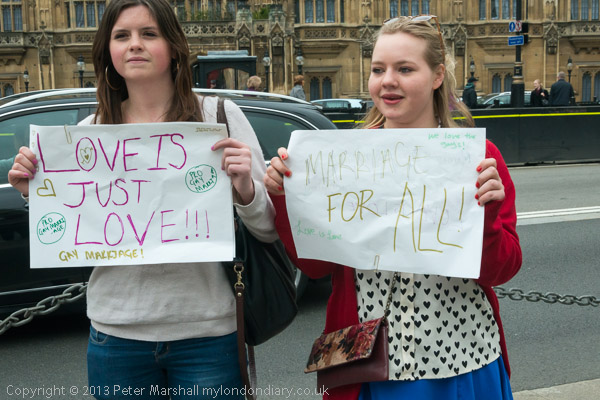 LOVE IS
JUST
LOVE!!!
PRO
GAY MARRIAGE
PRO
GAY MARRIAGE
GAY MARRIAGE!
MARRIAGE
FOR ALL!
Copyright © 2013 Peter Marshall mylondondiary.co.uk